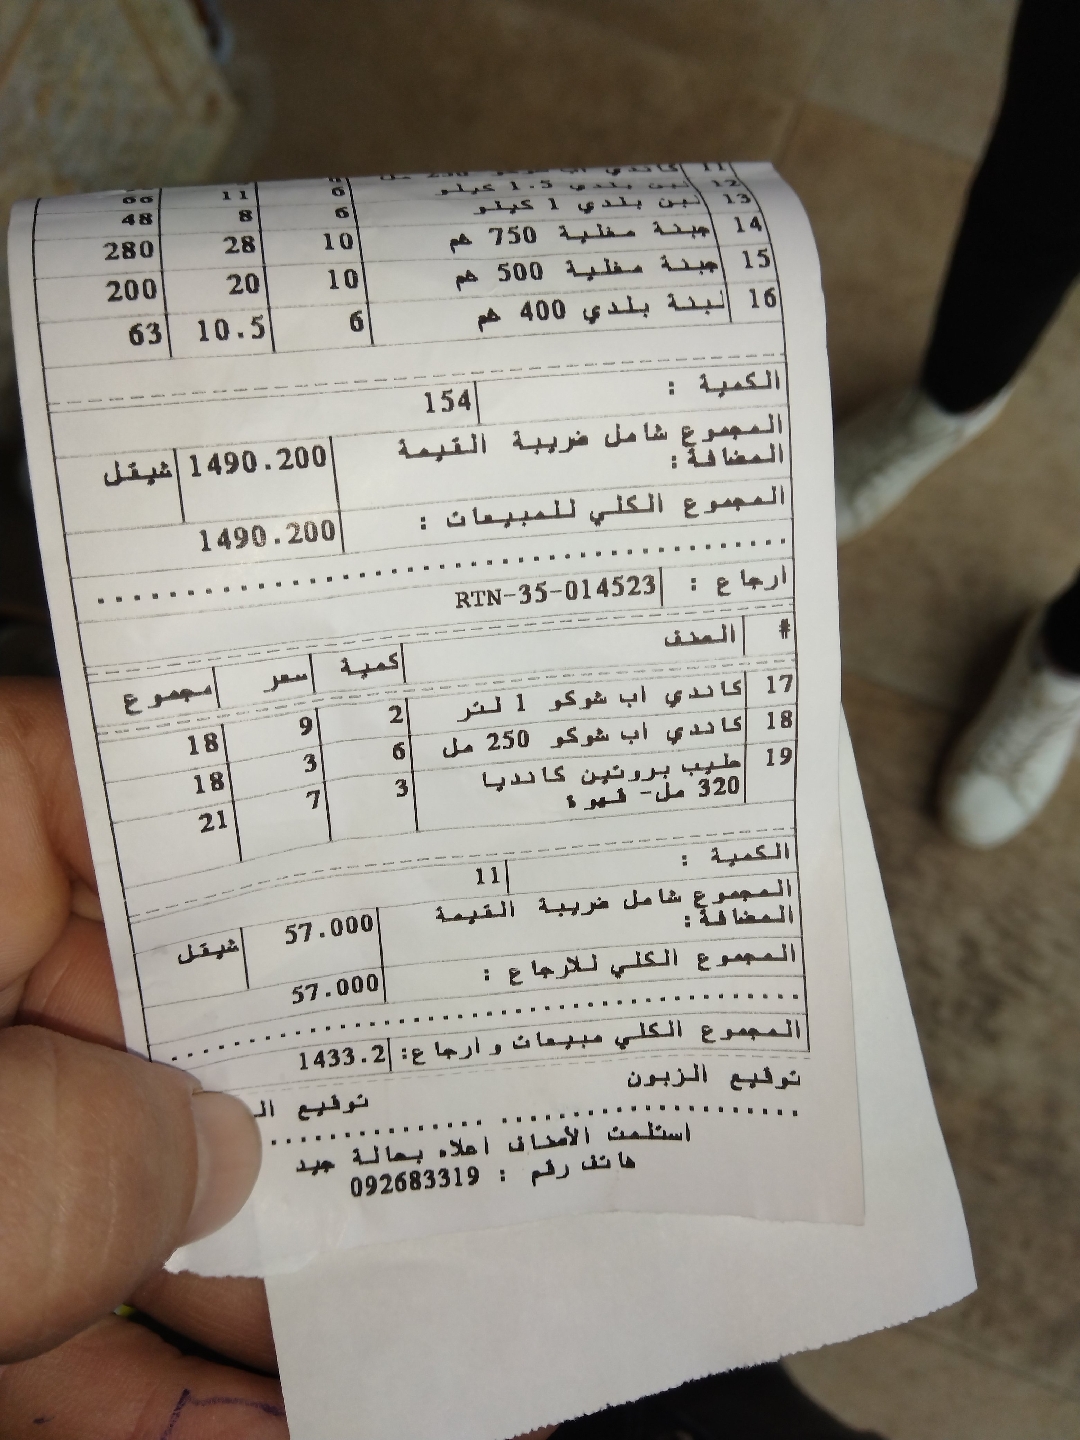 11 كاندي اب شوكو 250 مل 6
12 لبن بلدي 1.5 كيلو 6 11 66
13 لبن بلدي 1 كيلو 6 8 48
14 جبنة مغلية 750 غم 10 28 280
15 جبنة مغلية 500 غم 10 20 200
16 لبنة بلدي 400 غم 6 10.5 63
الكمية : 154
المجموع شامل ضريبة القيمة 1490.200 شيقل
المضافة:
المجموع الكلي للمبيعات : 1490.200
ارجاع : RTN-35-014523
# الصنف كمية سعر مجموع
17 كاندي اب شوكو 1 لتر 2 9 18
18 كاندي اب شوكو 250 مل 6 3 18
19 حليب بروتين كانديا 3 7 21
320 مل- قهوة
الكمية : 11
المجموع شامل ضريبة القيمة 57.000 شيقل
المضافة:
المجموع الكلي للارجاع : 57.000
المجموع الكلي مبيعات و ارجاع: 1433.2
توقيع الزبون توقيع
استلمت الأصناف اعلاه بحالة جيد
هاتف رقم : 092683319